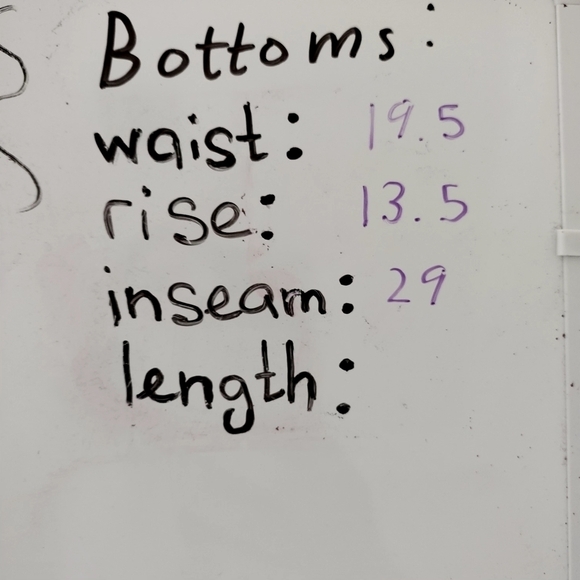 Bottoms:
waist: 19.5
rise: 13.5
inseam: 29
length: